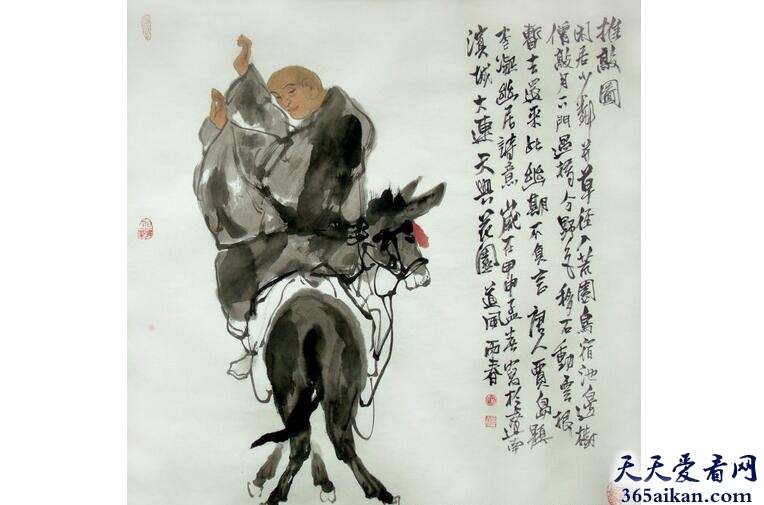 推敲圖
閑居少鄰并草徑入荒園鳥宿池邊樹
僧敲月下門過橋分野色移石動雲根
暫去還來此幽期不負言唐人賈島題
李凝幽居詩意歲在甲申孟春寫於遼南
濱城大連天興花園道風
天天爱看网
365aikan.com